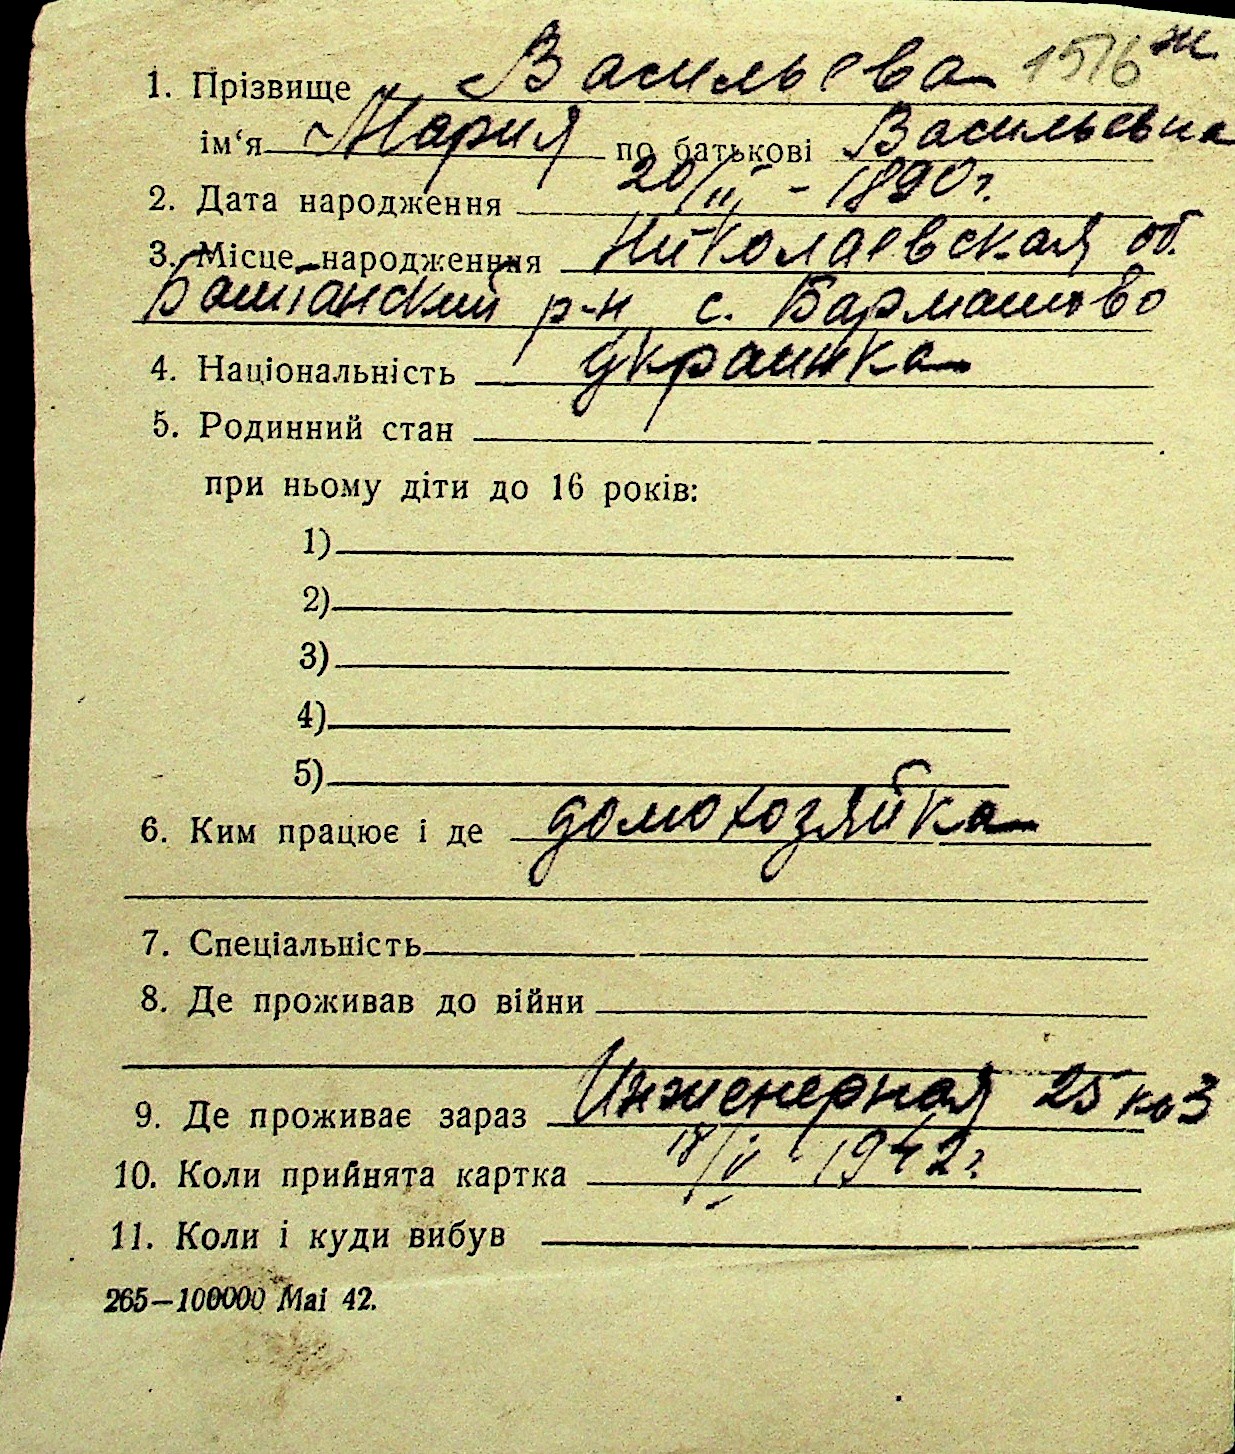 1. Прізвище Васильева 1516 ж
ім‘я Мария по батькові Васильевна
2. Дата народження 20/II - 1890г.
3. Місце народження Николаевская об.
Баштанский р-н с. Бармашово
4. Національність украинка
5. Родинний стан
при ньому діти до 16 років:
1)
2)
3)
4)
5)
6. Ким працює і де домохозяйка
7. Спеціальність
8. Де проживав до війни
9. Де проживає зараз Инженерная 25 кв 3
10. Коли прийнята картка 18/V - 1942г.
11. Коли і куди вибув
265—100000 Mai 42.